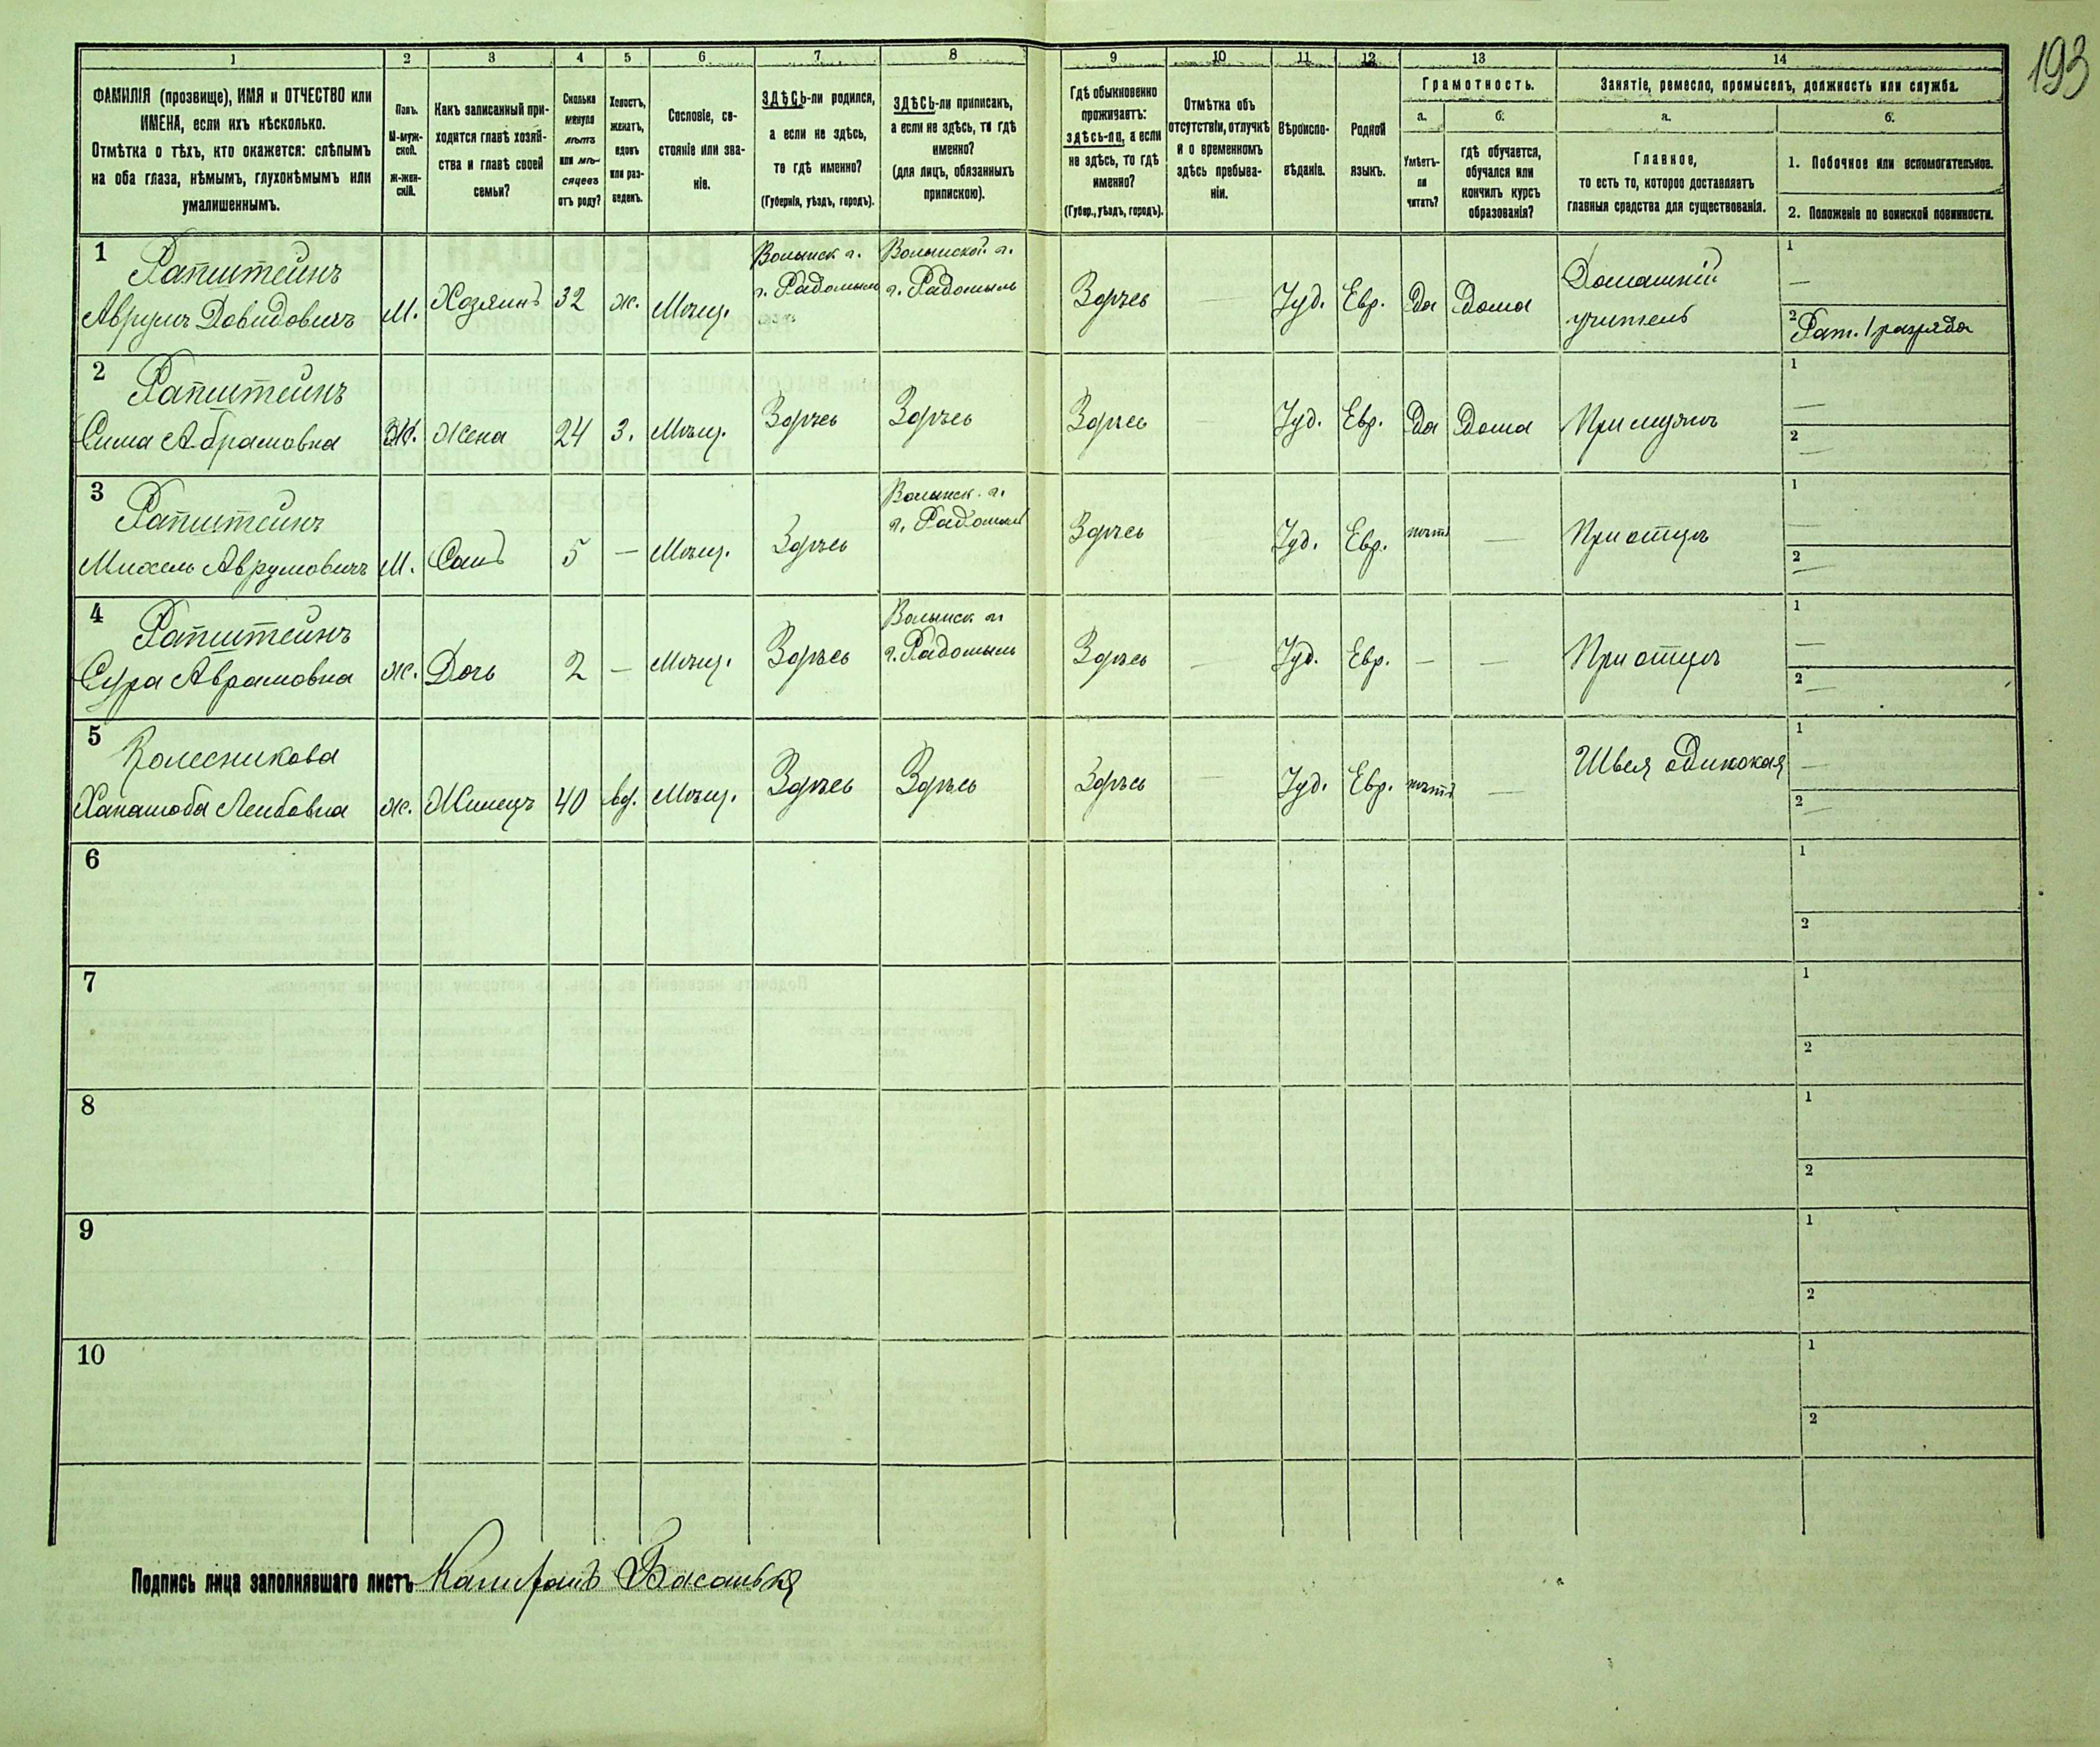 193
1 2 3 4 5 6 7 8 9 10 11 12 13 14
ФАМИЛІЯ (прозвище), ИМЯ и ОТЧЕСТВО или
ИМЕНА, если ихъ нѣсколько.
Отмѣтка о тѣхъ, кто окажется: слѣпымъ
на оба глаза, нѣмымъ, глухонѣмымъ или
умалишеннымъ.
Полъ.
М-муж-
ской.
Ж-жен-
скій.
Какъ записанный при-
ходится главѣ хозяй-
ства и главѣ своей
семьи?
Сколько
минуло
лѣтъ
или мѣ-
сяцевъ
отъ роду?
Холостъ,
женатъ,
вдовъ
или раз-
веденъ.
Сословіе, со-
стояніе или зва-
ніе.
ЗДѢСЬ-ли родился,
а если не здѣсь,
то гдѣ именно?
(Губернія, уѣздъ, городъ).
ЗДѢСЬ-ли приписанъ,
а если не здѣсь, то гдѣ
именно?
(для лицъ, обязанныхъ
припискою).
Гдѣ обыкновенно
проживаетъ:
здѣсь-ли, а если
не здѣсь, то гдѣ
именно?
(Губер., уѣздъ, городъ).
Отмѣтка объ
отсутствіи, отлучкѣ
и о временномъ
здѣсь пребыва-
ніи.
Вѣроиспо-
вѣданіе.
Родной
языкъ.
Грамотность.
а.
Умѣетъ-
ли
читать?
б.
гдѣ обучается,
обучался или
кончилъ курсъ
образованія?
Занятіе, ремесло, промыселъ, должность или служба.
а.
Главное,
то есть то, которое доставляетъ
главныя средства для существованія.
б.
1. Побочное или вспомогательное.
2. Положеніе по воинской повинности.
1
Рапштейнъ
Аврумъ Довидовичъ
М.
Хозяинъ
32
ж.
Мѣщ.
Волынск г.
г. Радомысль
Волынской г.
г. Радомысль
Здѣсь
—
Іуд.
Евр.
Да
Дома
Домашній
учитель
1
—
2 Рат. 1 разряда
2
Рапштейнъ
Сима Абрамовна
Ж.
Жена
24
З.
Мѣщ.
Здѣсь
Здѣсь
Здѣсь
—
Іуд.
Евр.
Да
Дома
При мужѣ
1
—
2
—
3
Рапштейнъ
Михель Аврумовичъ
М.
Сынъ
5
—
Мѣщ.
Здѣсь
Волынск. г.
г. Радомысль
Здѣсь
—
Іуд.
Евр.
нѣтъ
—
При отцѣ
1
—
2
—
4
Рапштейнъ
Сура Аврамовна
ж.
Дочь
2
—
Мѣщ.
Здѣсь
Волынск г.
г. Радомысль
Здѣсь
—
Іуд.
Евр.
—
—
При отцѣ
1
—
2
—
5
Колесникова
Ханалюба Лейбовна
ж.
Жилецъ
40
вд.
Мѣщ.
Здѣсь
Здѣсь
Здѣсь
—
Іуд.
Евр.
нѣтъ
—
Швея одинокая
1
—
2
—
6
1
2
7
1
2
8
1
2
9
1
2
10
1
2
Подпись лица заполнявшаго листъ